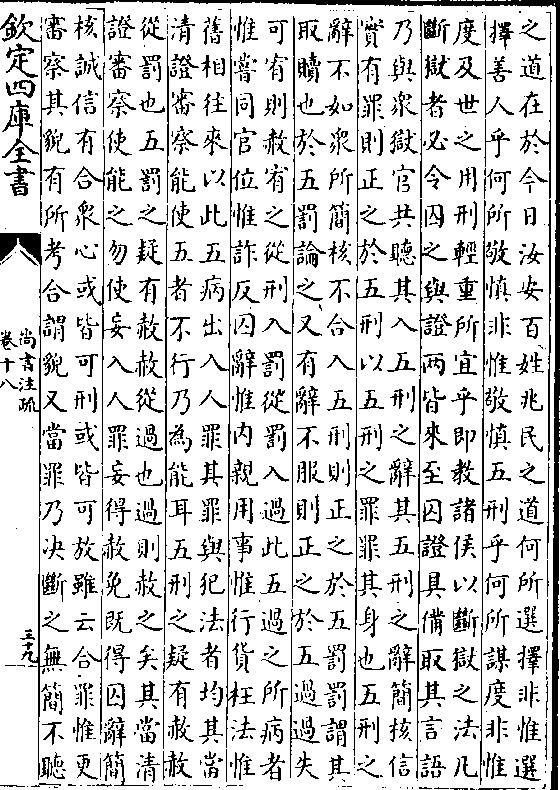 之道在於今日汝安百姓兆民之道何所選擇非惟選
擇善人乎何所敬慎非惟敬慎五刑乎何所謀度非惟
度及世之用刑輕重所宜乎即教諸侯以斷獄之法凡
斷獄者必令囚之與證兩皆來至囚證具備取其言語
乃與衆獄官共聽其入五刑之辭其五刑之辭簡核信
實有罪則正之於五刑以五刑之罪罪其身也五刑之
辭不如衆所簡核不合入五刑則正之於五罰罰謂其
取贖也於五罰論之又有辭不服則正之於五過過失
可宥則赦宥之從刑入罰從罰入過此五過之所病者
惟嘗同官位惟詐反囚辭惟内親用事惟行貨枉法惟
舊相往來以此五病出入人罪其罪與犯法者均其當
清證審察能使五者不行乃為能耳五刑之疑有赦赦
從罰也五罰之疑有赦赦從過也過則赦之矣其當清
證審察使能之勿使妄入人罪妄得赦免既得囚辭簡
核誠信有合衆心或皆可刑或皆可放雖云合罪惟更
審察其貌有所考合謂貌又當罪乃决斷之無簡不聽
欽定四庫全書
尚書注疏
卷十八
三十九